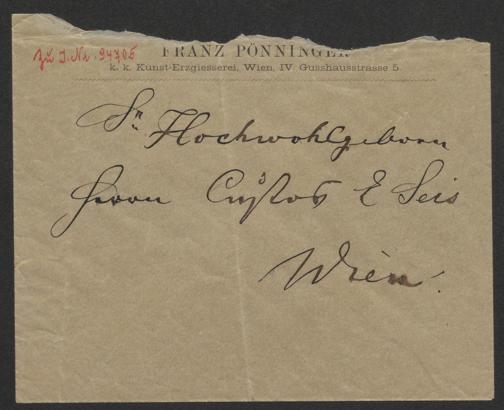 zu I. Nr. 94705
FRANZ PÖNNINGER
k. k. Kunst-Erzgiesserei, Wien, IV Gusshausstrasse 5.
Sr. Hochwohlgeborn
Herrn Custos E Seis
Wien.